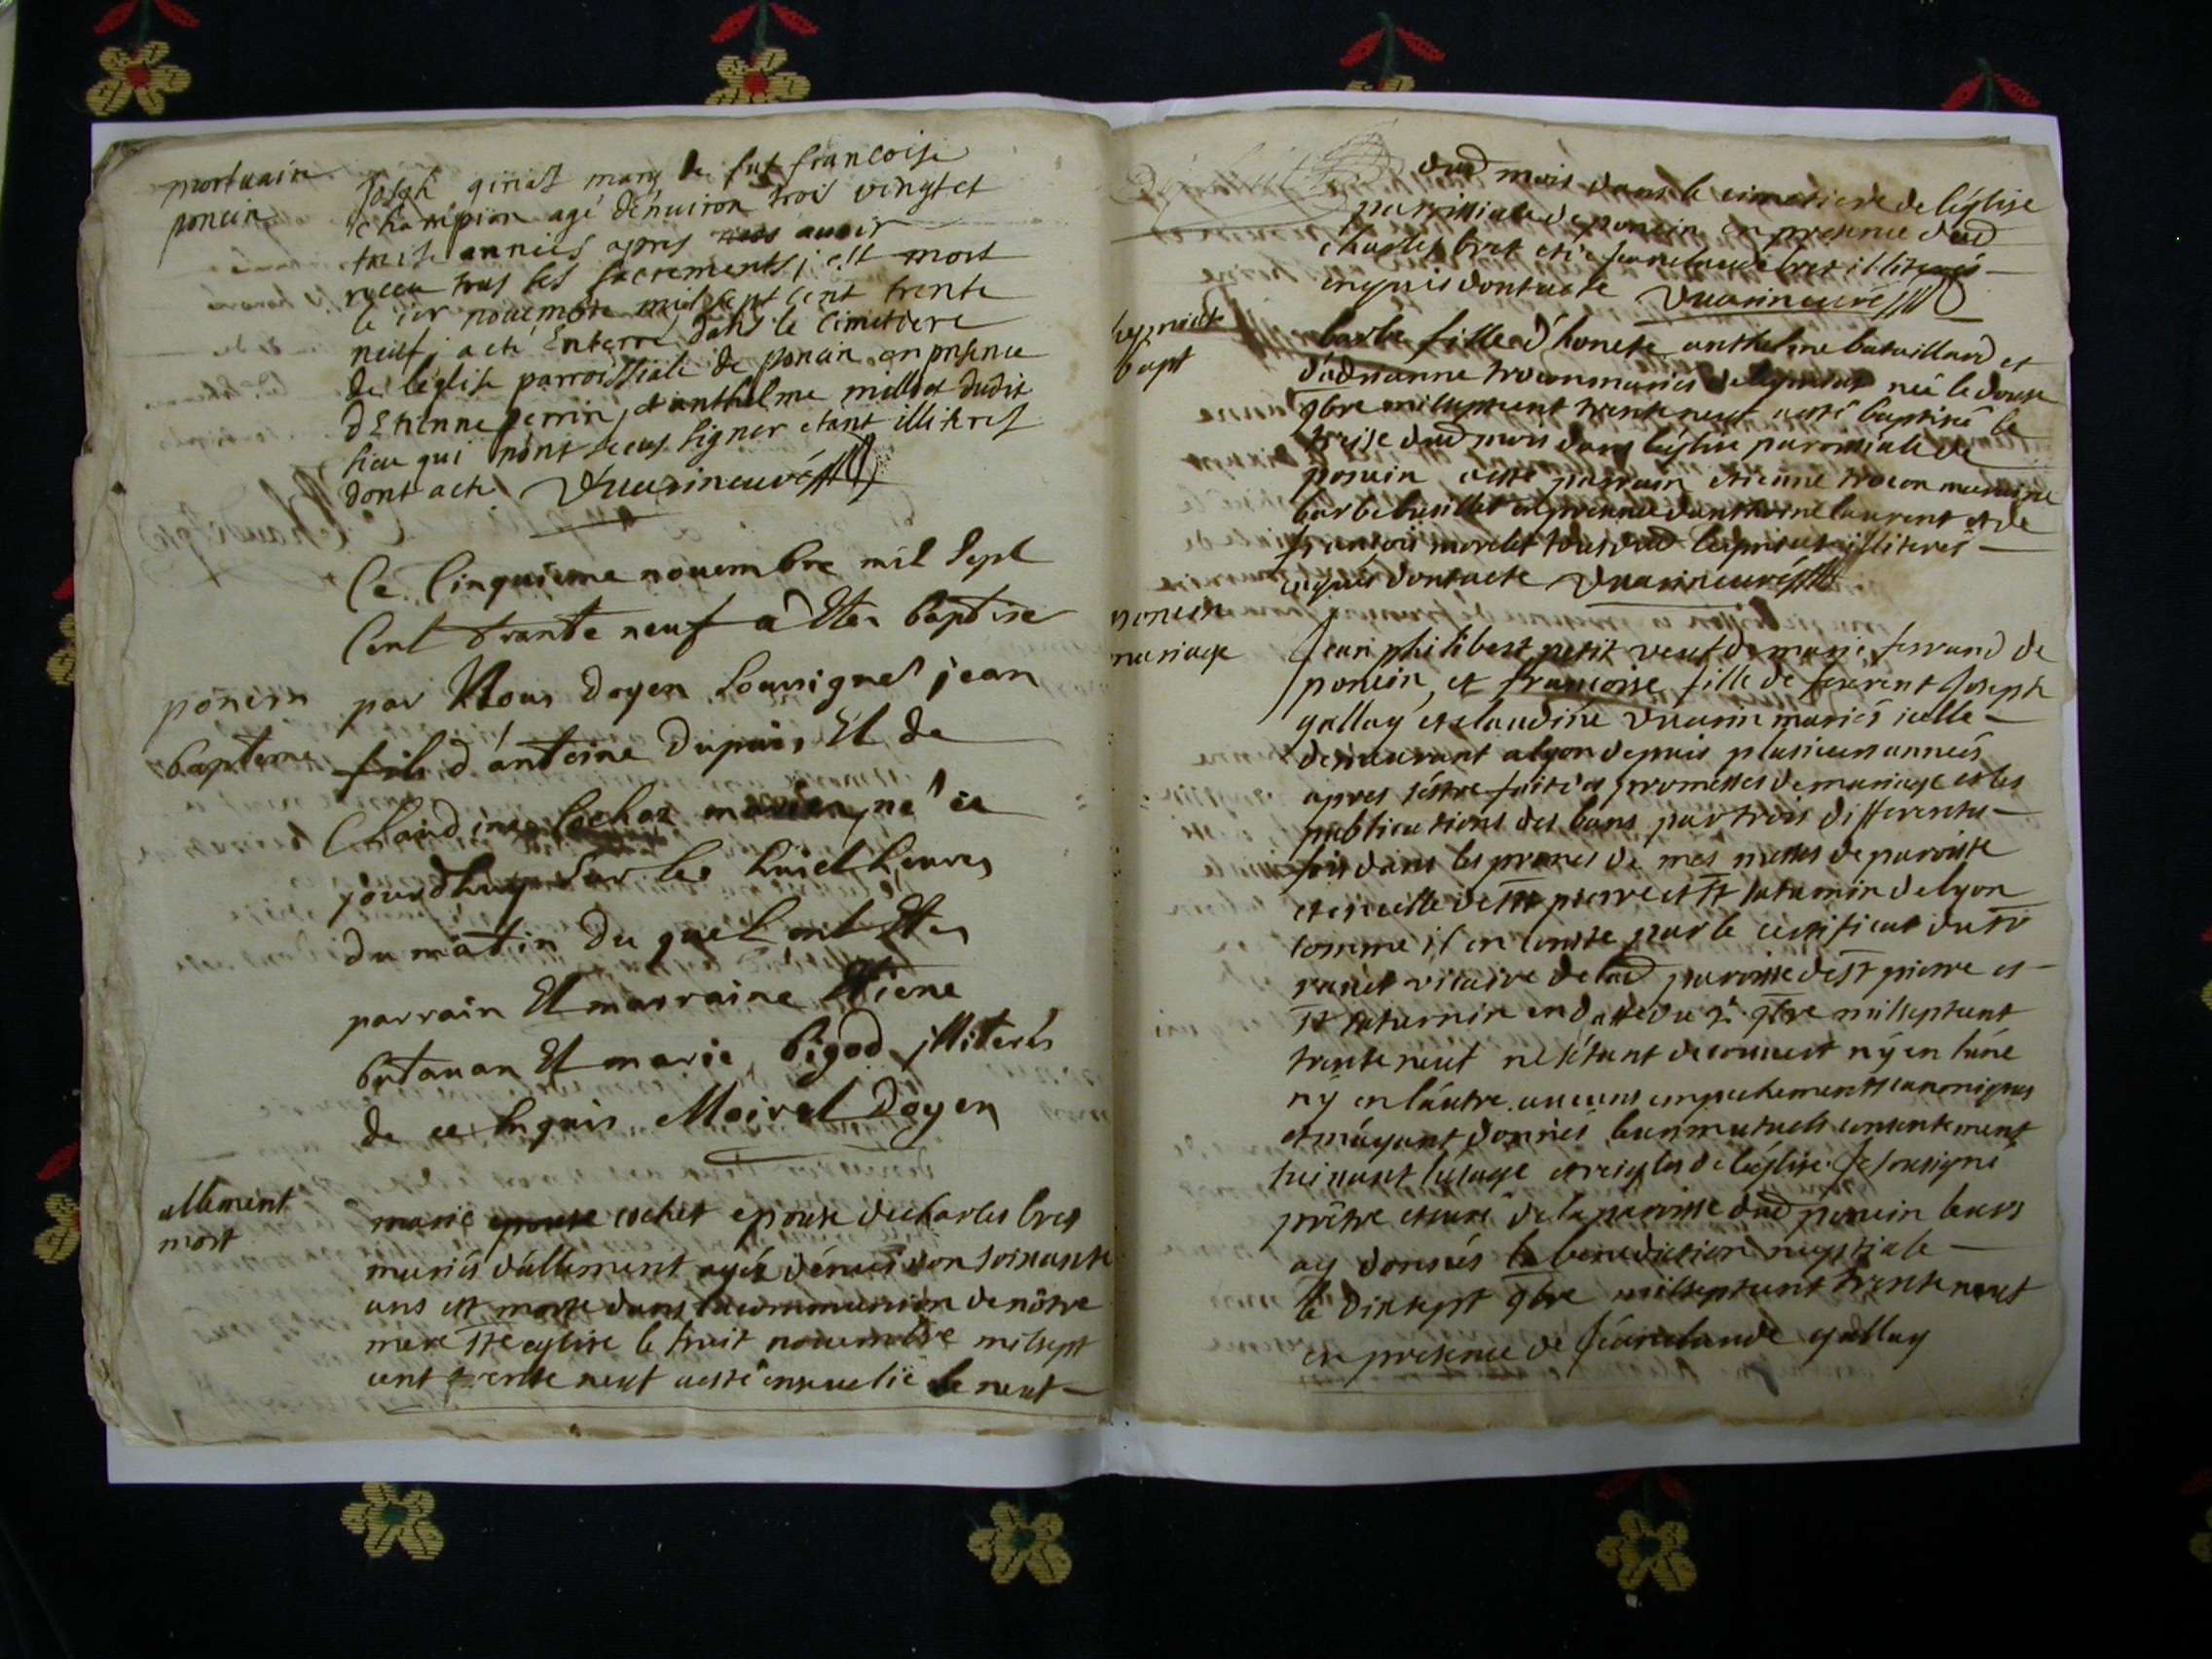 mortuain
poncin
Joseph girias mary de fut francoise
champion agé d'enuiron trois vingt et
treise années apres auoir
receu tous les sacrements, est mort
le ier nouembre mil sept cent trente
neuf, a eté Enterré dans le cimetiere
de l'eglise parroissiale de poncin en presence
d'Etienne perrin, d'anthelme millot dudit
lieu qui n'ont sceus signer etant illiteres
dont acte Vuarin curé
Ce Cinquieme nouembre mil Sept
Cent trante neuf a Ete Baptise
poncin
bapteme
par Nous doyen Soussigné jean
fils d'antoine Dupuis Et de
Claudine Cochet né ce
jourdhuy Sur les huict heures
du matin du quel ont Ete
parrain Et marraine Etiene
butauan Et marie bigod illiterés
de ce Enquis Moiret Doyen
allement
mort
marie cochet epouse de charles bret
mariés d'allement agée d'enuiron soixante
ans est morte dans la communion de nôtre
mere ste eglise le huit nouembre milsept
cent trente neuf a esté enseuelie le neuf
dud mois dans le cimetiere de l'église
parroissiale de poncin en presence dud
charles bret et de jean claude bret illiterés
enquis dont acte Vuarin curé
leymiat
bapt
barbe fille d'honete anthelme bataillard et
d'adrianne trocon mariés de leymiat née le douse
9bre milseptcent trente neuf a esté baptisée le
treise dud mois dans l'église paroissiale de
poncin a esté parrain etienne trocon marraine
barbe en presence d'anthoine laurent et de
françois morelet tous dud leymiat illiterés
enquis dont acte Vuarin curé
poncin
mariage
Jean philibert petit veuf de marie ferrand de
poncin, et françoise fille de Joseph
gallay et claudine Vuarin mariés icelle
demeurant a lyon depuis plusieurs années
apres s'éstre faites promesses de mariage et les
publications des bans par trois differentes
fois dans les prones de mes messes de paroisse
et en celle de st pierre et st saturnin de lyon
comme il en conste par le certificat du sr
vicaire de lad paroisse de st pierre et
st saturnin en datte du 9bre milseptcent
trente neuf ne s'étant decouuert ny en l'une
ny en l'autre aucuns empechements canoniques
et m'ayant donnés leur mutuels consentement
suiuant l'usage et reigles de l'église Je sousigné
prêtre et curé de la paroisse dud poncin leurs
ay donnés la benediction nuptiale
le dixsept 9bre milseptcent trente neuf
en presence de Jean claude gallay